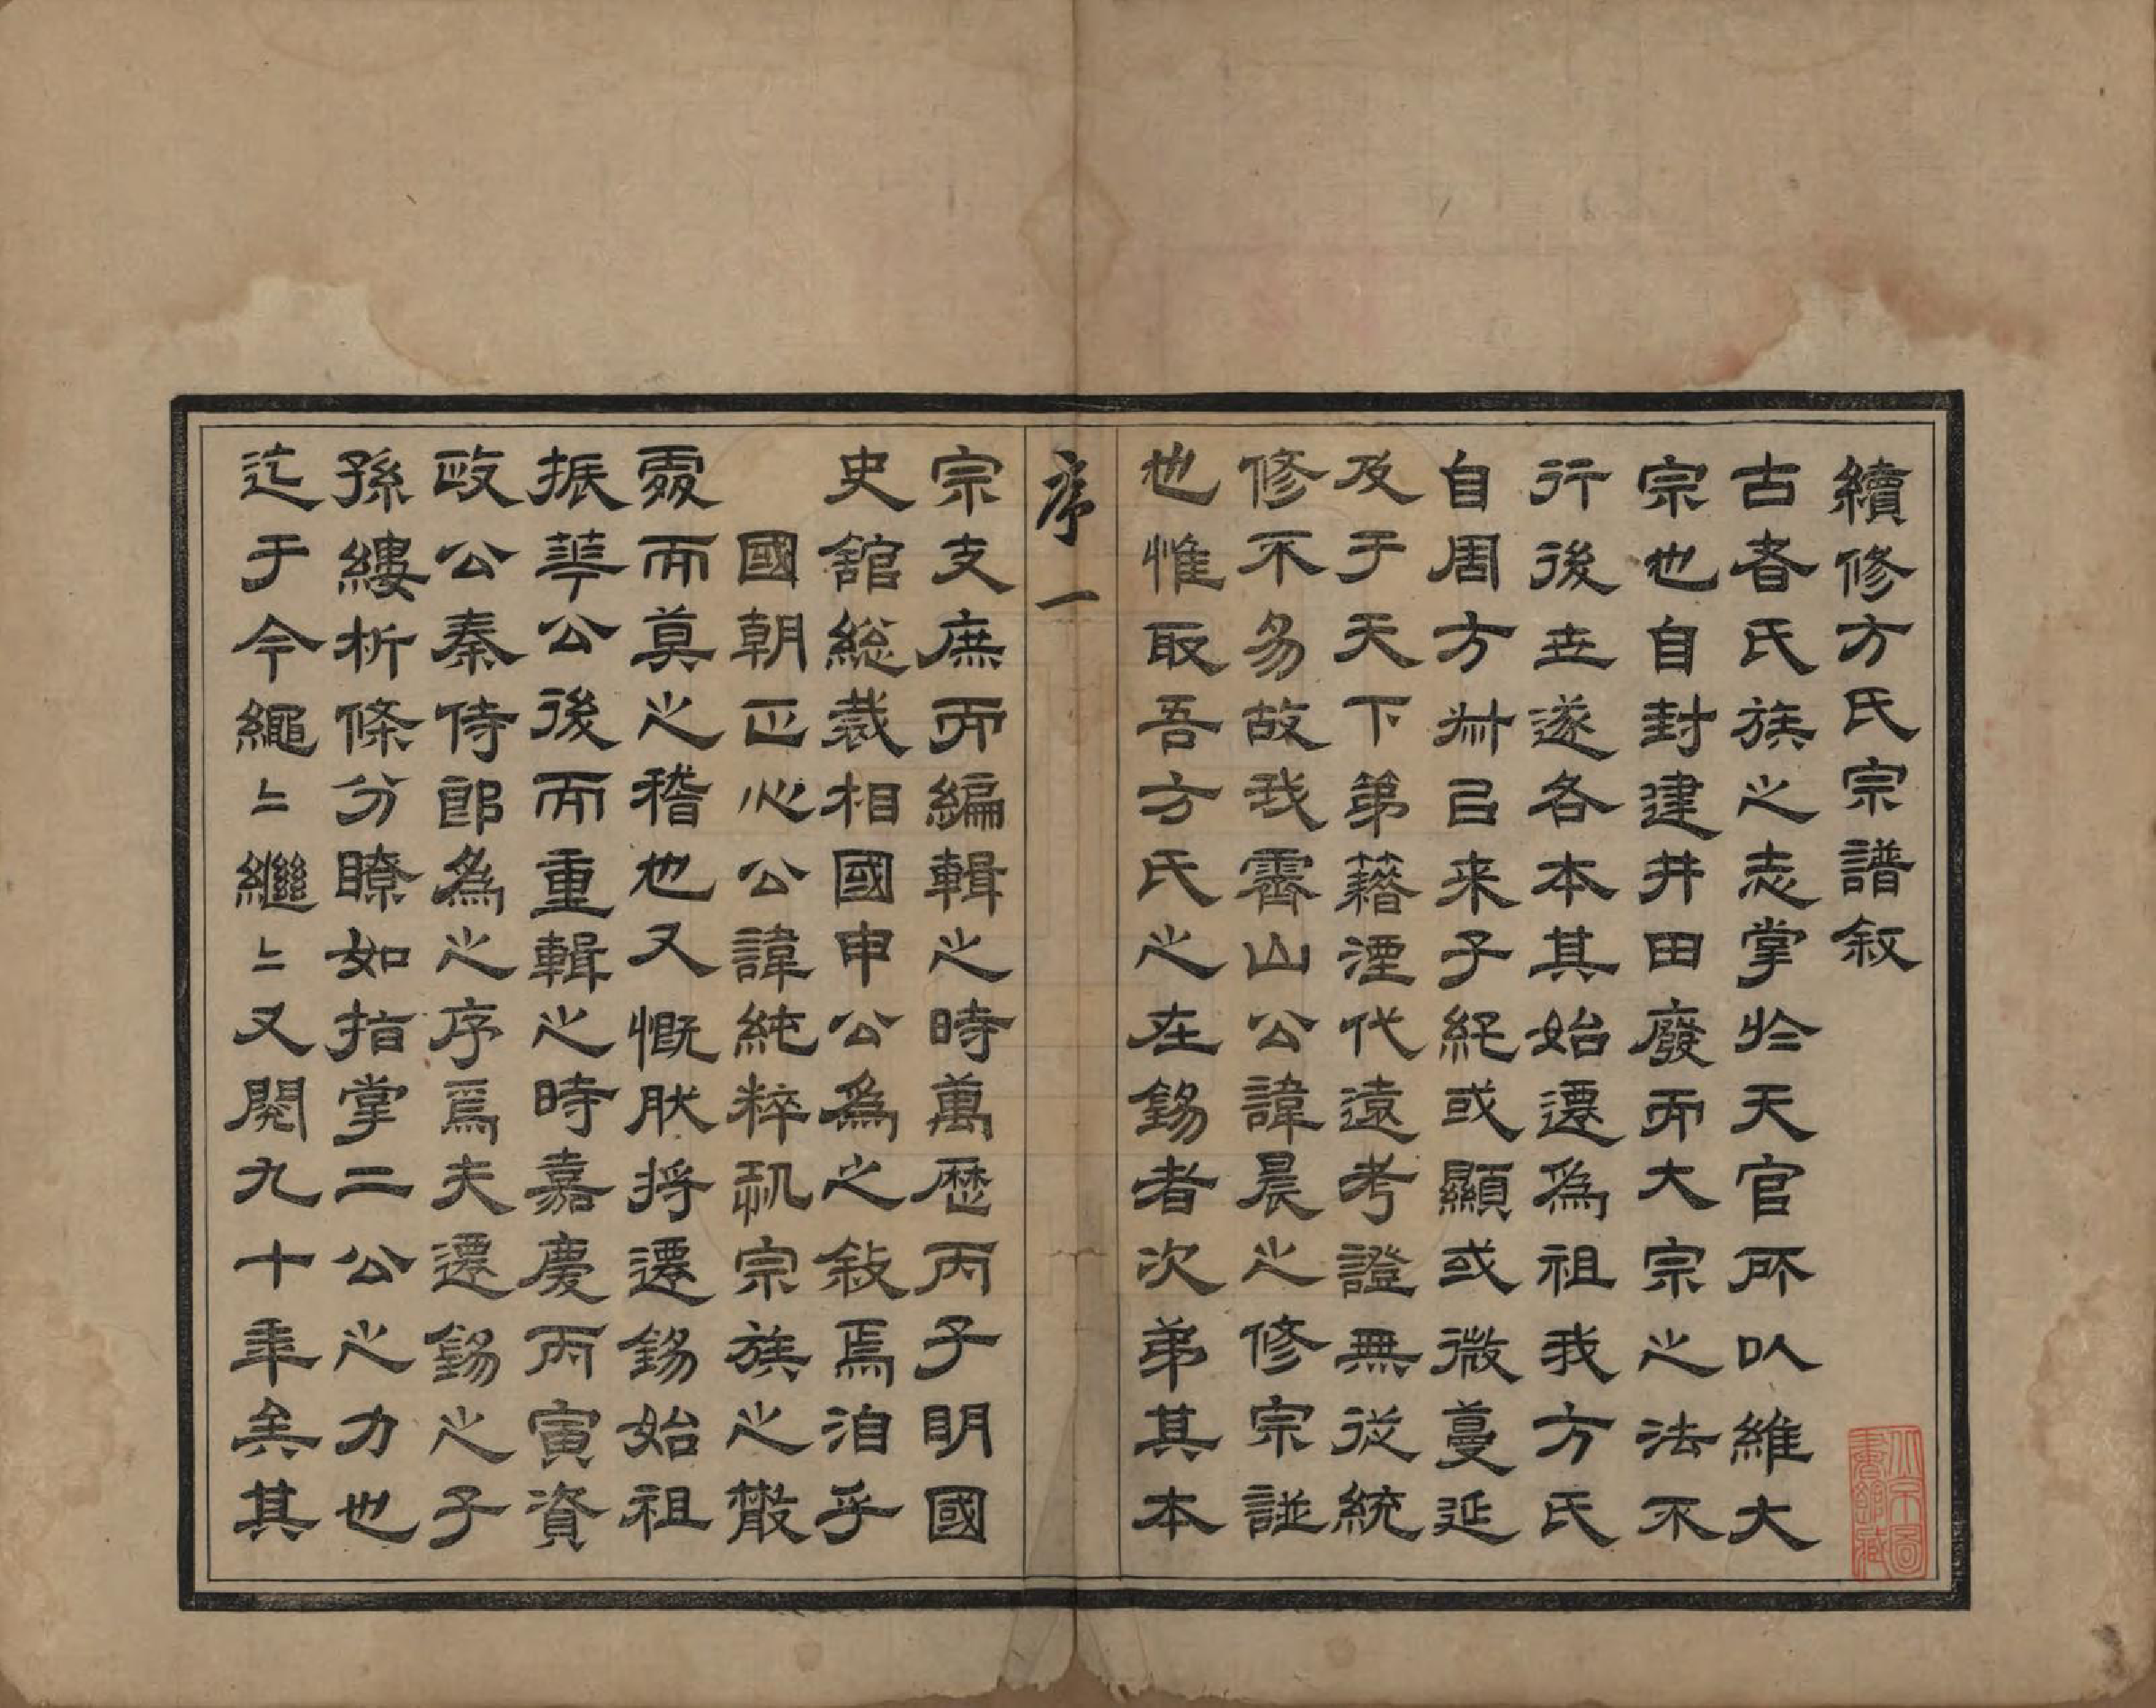 續修方氏宗譜敘
古者氏族之志掌於天官所以維大
宗也自封建井田廢而大宗之法不
行後世遂各本其始遷為祖我方氏
自周方叔㠯来子絍或顯或微蔓延
及于天下第籍湮代遠考證無從統
修不易故我霽山公諱晨之修宗譜
也惟取吾方氏之在錫者次第其本
序一
宗支庶而編輯之時萬歷丙子明國
史館總裁相國申公為之敍焉洎乎
國朝正心公諱純粹祇宗族之散
𮗚而莫之稽也又慨肰將遷錫始祖
振華公後而重輯之時嘉慶丙寅資
政公秦侍郎為之序焉夫遷錫之子
孫縷析條分瞭如指掌二公之力也
迄于今繩〻繼〻又閱九十年矣其